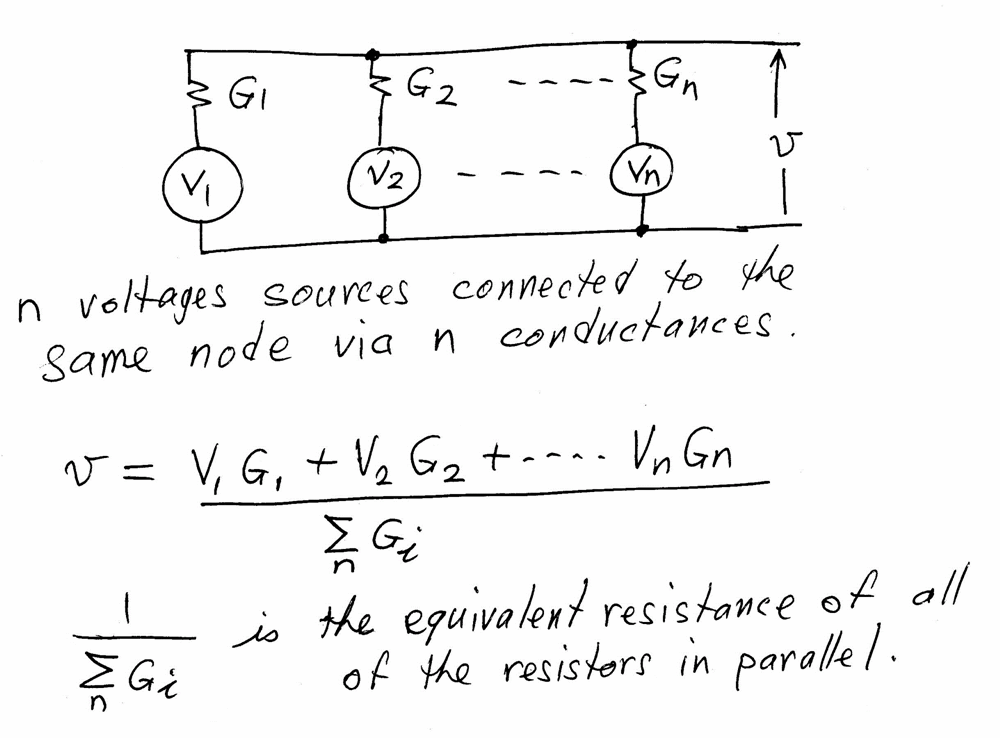 G1 G2 ---- Gn
V1 V2 ---- Vn v
n voltages sources connected to the
same node via n conductances.
v = V1 G1 + V2 G2 +.... Vn Gn
∑ Gi
n
1
∑ Gi
n
is the equivalent resistance of all
of the resistors in parallel.